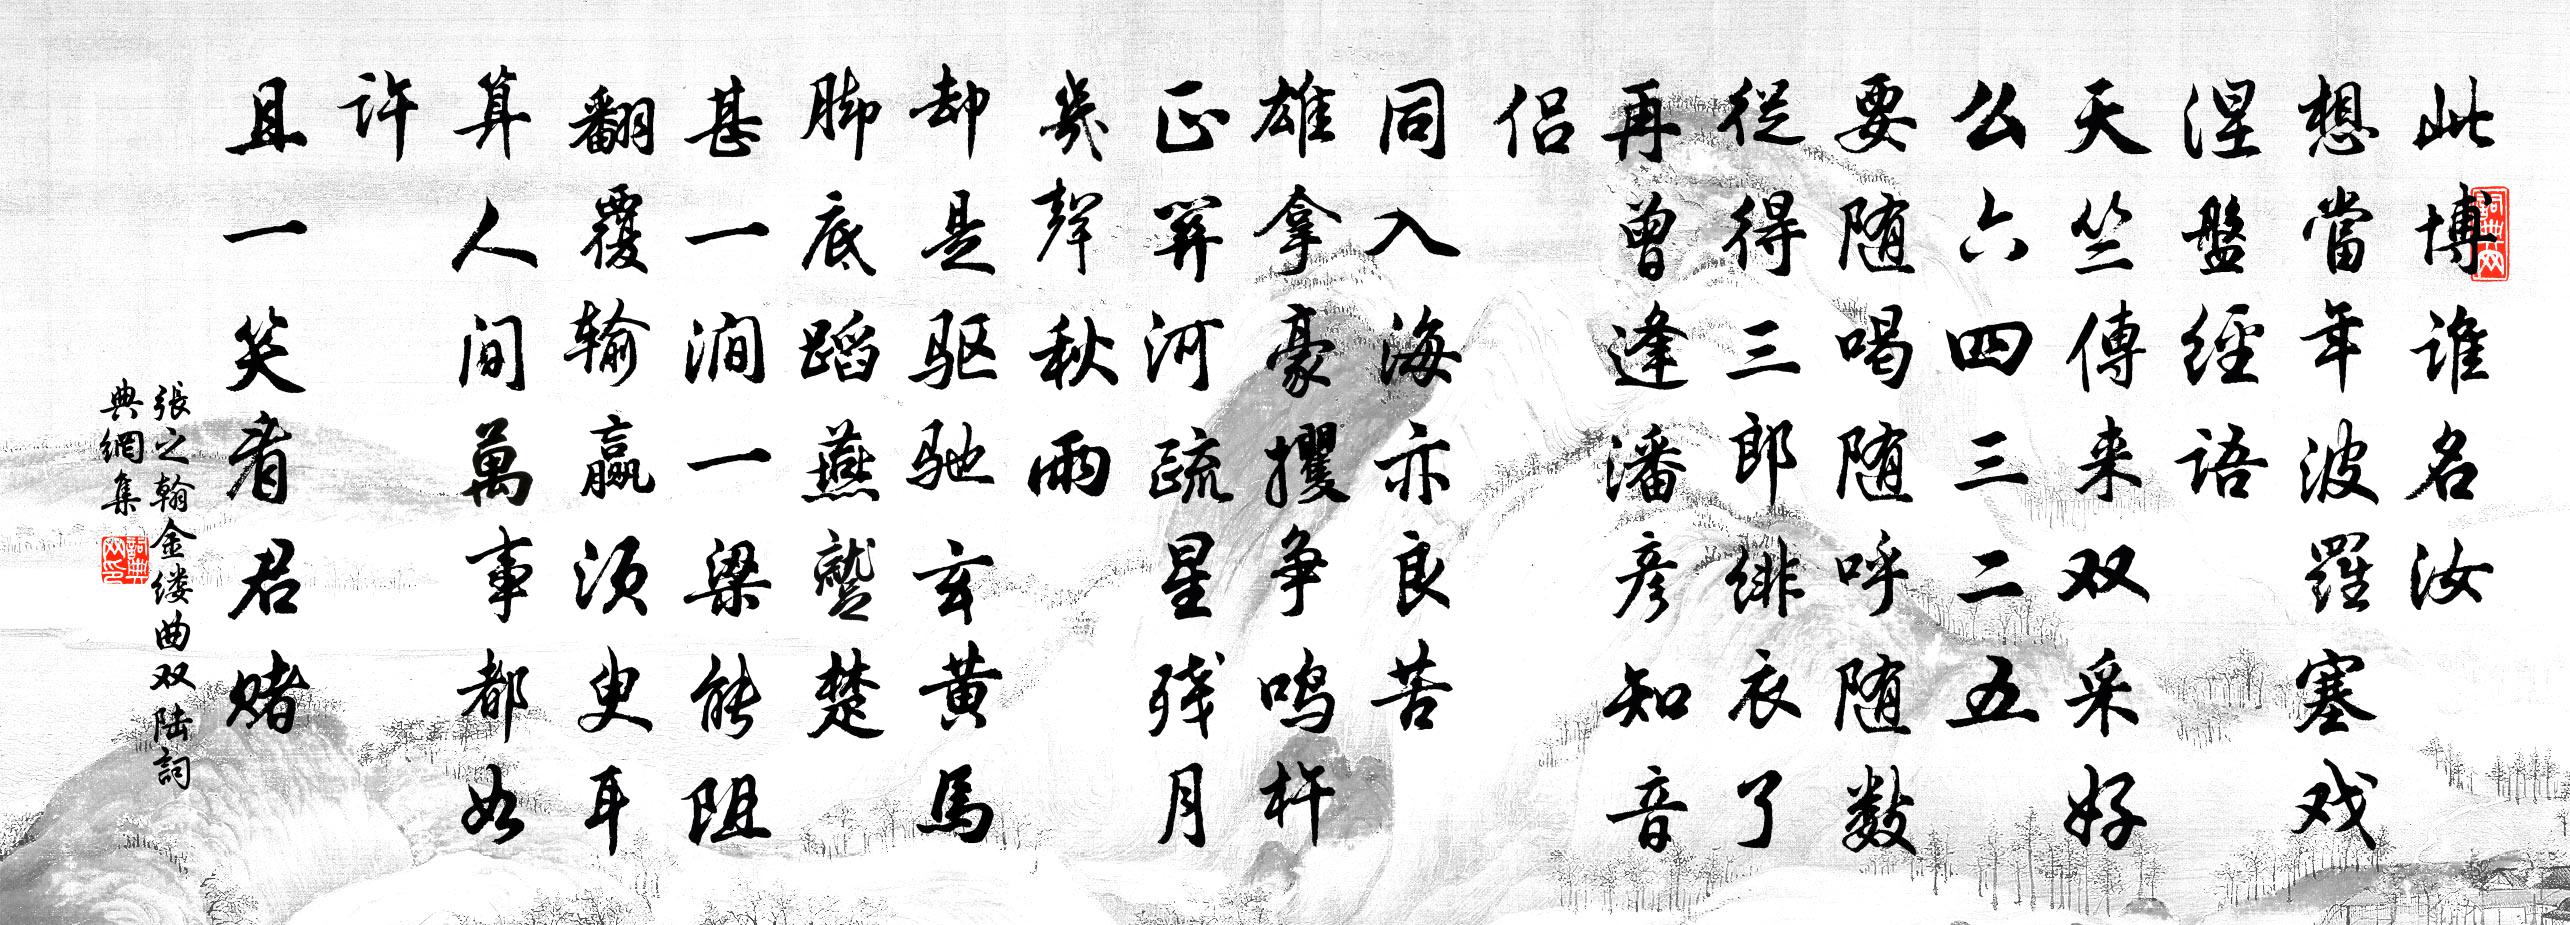 此博谁名汝
想當年波羅塞戏
涅盤經语
天竺傳来双采好
公六四三二五
要随喝随呼随数
從得三郎緋衣了
再曾逢潘彦知音
侣
同入海亦良苦
雄拿豪攫争鸣杵
正羿河疏星残月
幾聲秋雨
却是驱驰玄黄馬
脚底蹈燕蹵楚
甚一涧一梁能阻
翻覆输赢须臾耳
算人间萬事都如
许
且一笑看君赌
張之翰金缕曲双陆詞
典網集